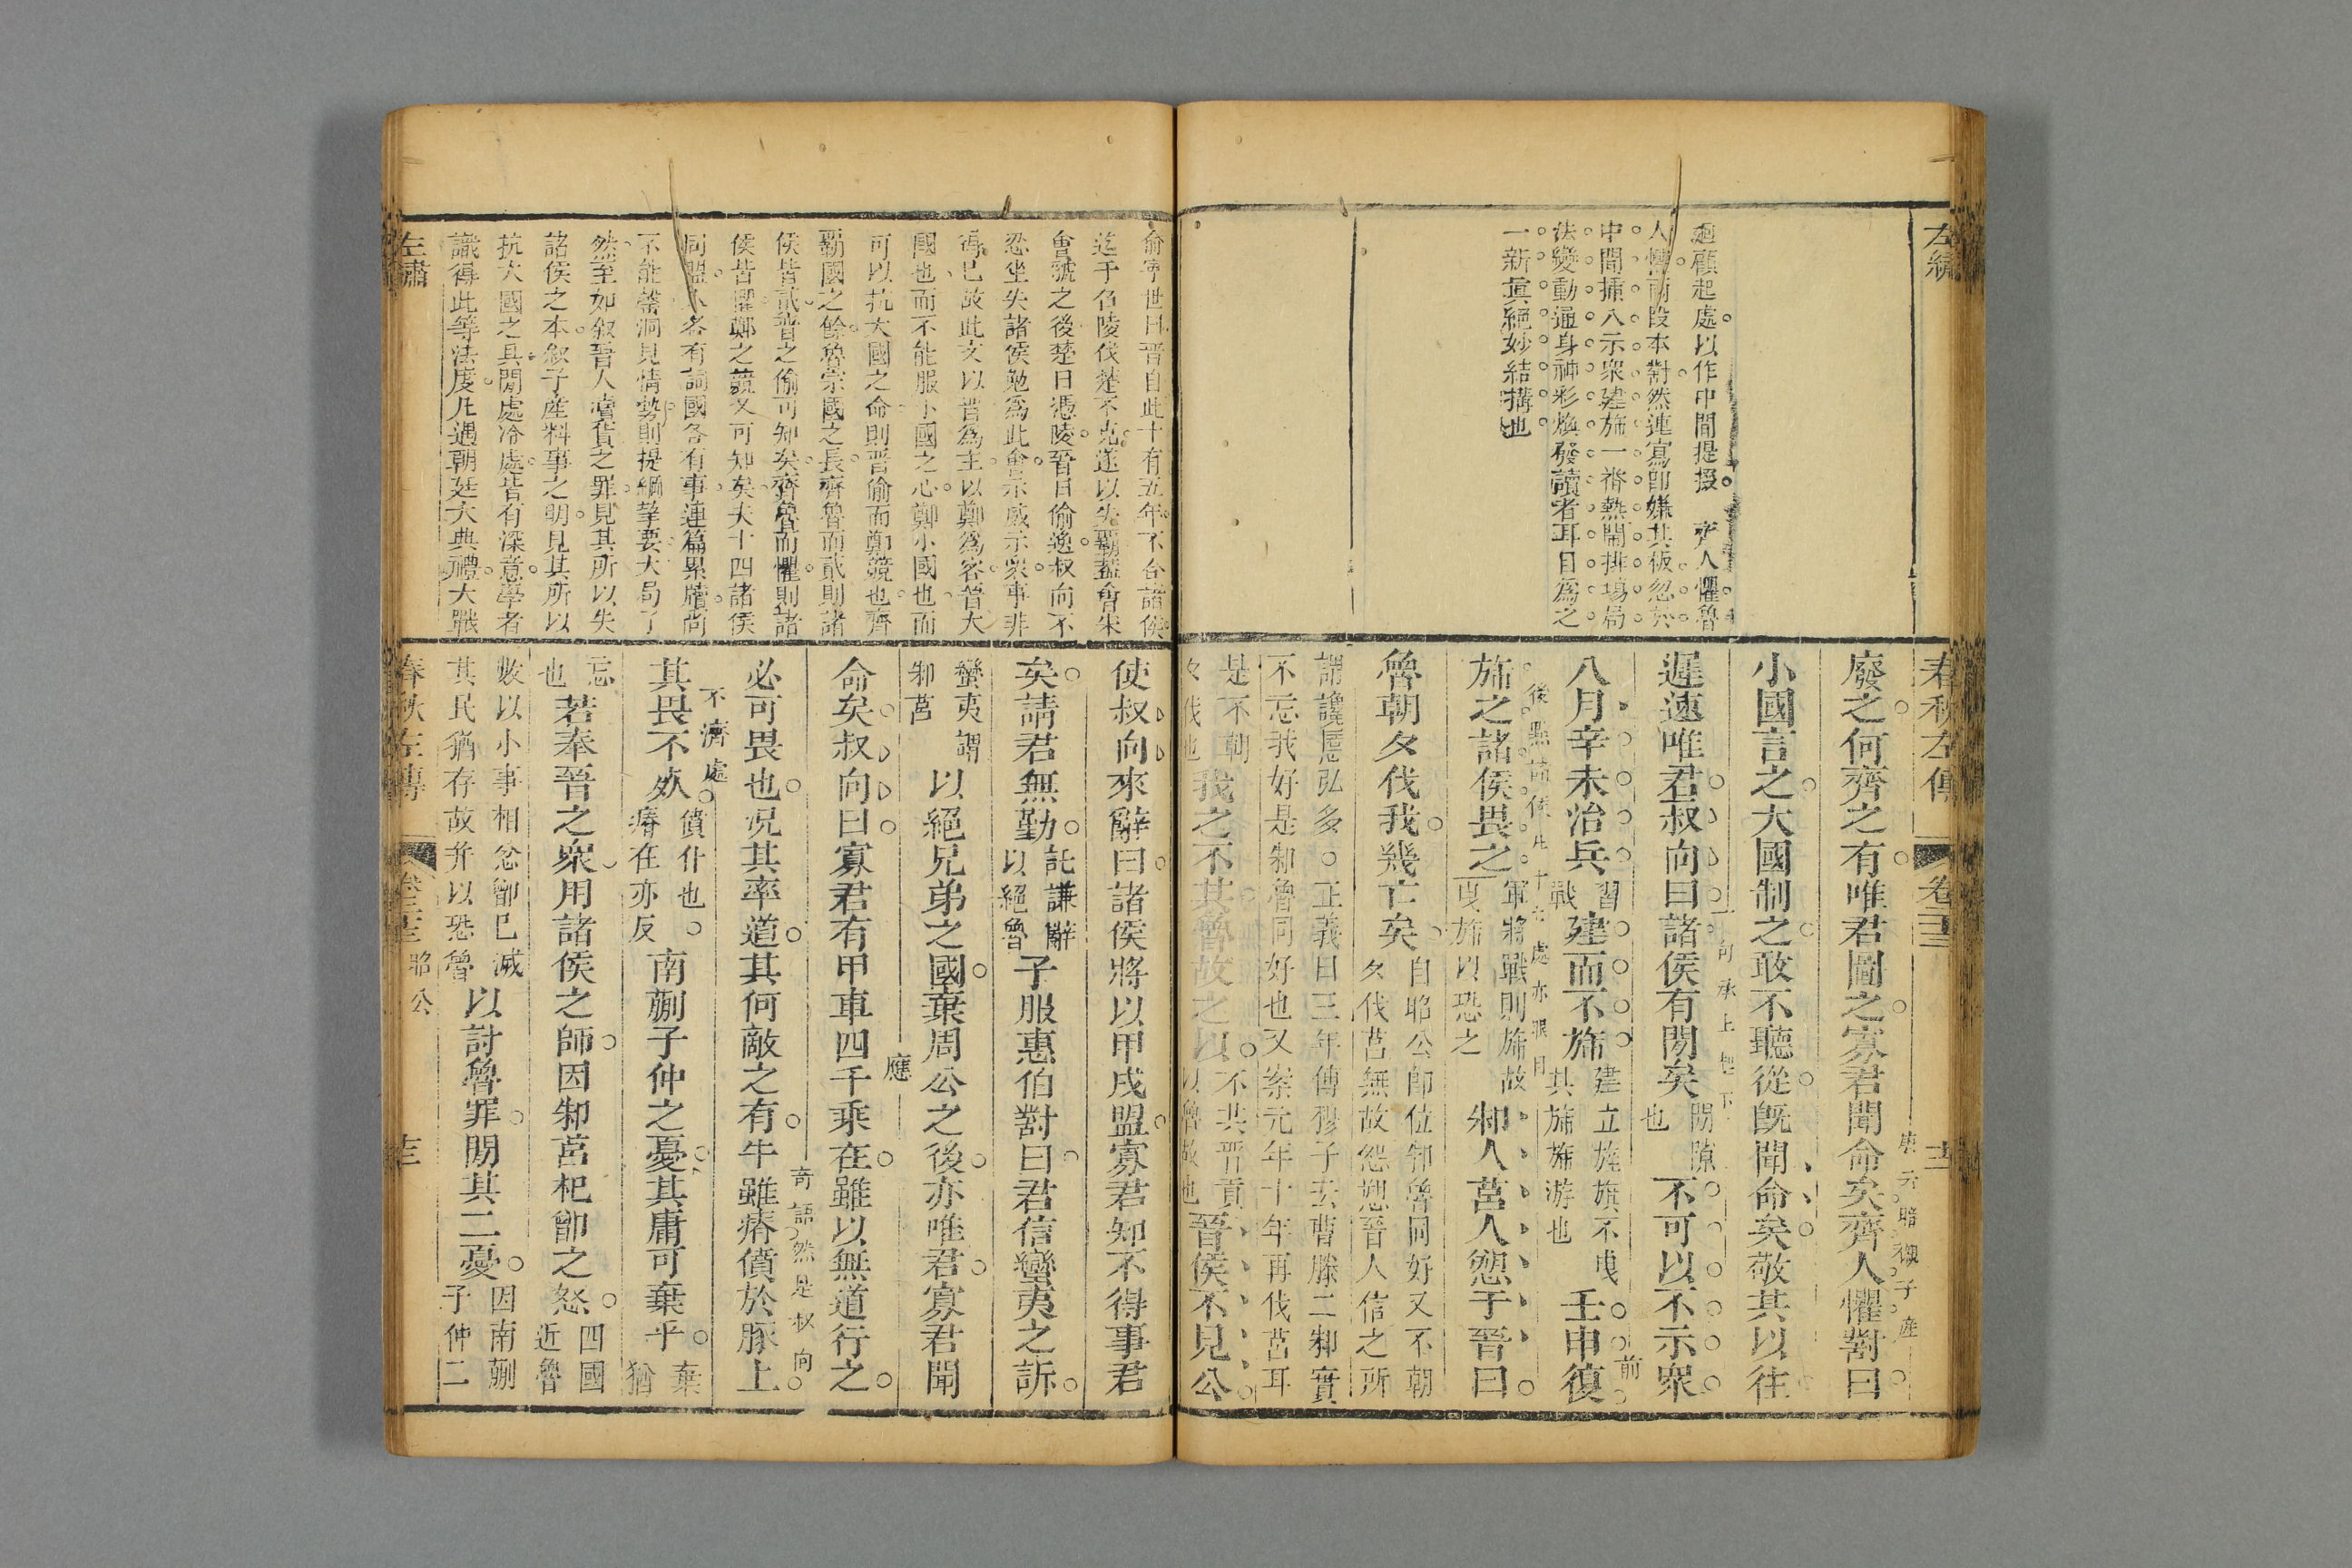 左繡
春秋左傳
卷二十三
十二
廻顧起處以作中間提掇 齊人懼魯
人懼兩段本對然連寫卽嫌其板忽於
中間揷入示衆建旆一番熱鬧排塲局
法變動通身神彩煥發讀者耳目爲之
一新眞絕妙結搆也
廢之何齊之有唯君圖之寡君聞命矣齊人懼對曰
小國言之大國制之敢不聽從旣聞命矣敬共以往
遲速唯君叔向曰諸侯有閒矣閒隙也不可以不示衆
八月辛未治兵習戰建而不旆建立旌旗不曳其旆旆游也壬申復
旆之諸侯畏之軍將戰則旆故曳旆以恐之邾人莒人愬于晉曰
魯朝夕伐我幾亡矣自昭公卽位邾魯同好又不朝夕伐莒無故怨愬晉人信之所
謂讒慝弘多○正義曰三年傳穆子云曹滕二邾實
不忘我好是邾魯同好也又案元年十年再伐莒耳
是不朝夕伐也我之不共魯故之以不共晉貢以魯故也晉侯不見公
俞寧世曰晉自此十有五年不合諸侯
迄于召陵伐楚不克遂以失霸蓋會宋
會虢之後楚日憑陵晉日偷逸叔向不
忍坐失諸侯勉爲此會示威示衆事非
得已故此文以晉爲主以鄭爲客晉大
國也而不能服小國之心鄭小國也而
可以抗大國之命則晉偷而鄭競也齊
霸國之餘魯宗國之長齊魯而貳則諸
侯皆貳晉之偷可知矣齊魯而懼則諸
侯皆懼鄭之競又可知矣夫十四諸侯
同盟 各有詞國各有事連篇累牘尚
不能 洞見情勢則提綱挈要大局了
然至如叙晉人瀆貨之罪見其所以失
諸侯之本叙子產料事之明見其所以
抗大國之具閒處冷處皆有深意學者
識得此等法度凡遇朝廷大典禮大戰
使叔向來辭曰諸侯將以甲戌盟寡君知不得事君
矣請君無勤託謙辭以絕魯子服惠伯對曰君信蠻夷之訴
蠻夷謂邾莒以絕兄弟之國棄周公之後亦唯君寡君聞
命矣叔向曰寡君有甲車四千乘在雖以無道行之
應
必可畏也況其率道其何敵之有牛雖瘠僨於豚上
奇語然是叔向
不濟處
其畏不死僨仆也○瘠在亦反南蒯子仲之憂其庸可棄乎棄猶
忘也若奉晉之衆用諸侯之師因邾莒杞鄫之怒四國近魯
數以小事相忿鄫已滅其民猶存故并以恐魯以討魯罪閒其二憂因南蒯子仲二
左繡
春秋左傳
卷二十三 昭公
十三